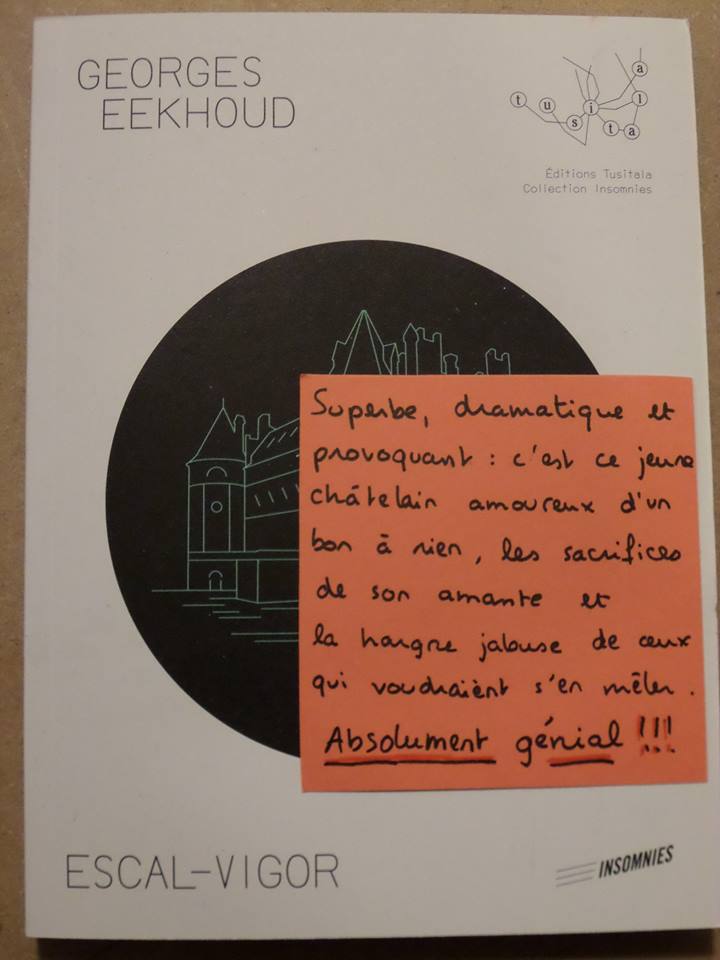 GEORGES
EEKHOUD
tusitala
Éditions Tusitala
Collection Insomnies
Superbe, dramatique et
provoquant : c'est ce jeune
châtelain amoureux d'un
bon à rien, les sacrifices
de son amante et
la hargne jalouse de ceux
qui voudraient s'en mêler.
Absolument génial !!!
ESCAL-VIGOR
INSOMNIES